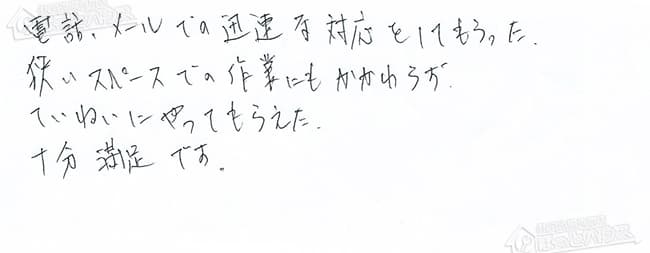 電話、メールでの迅速な対応をしてもらった.
狭いスペースでの作業にもかかわらず.
ていねいにやってもらえた.
十分満足です。